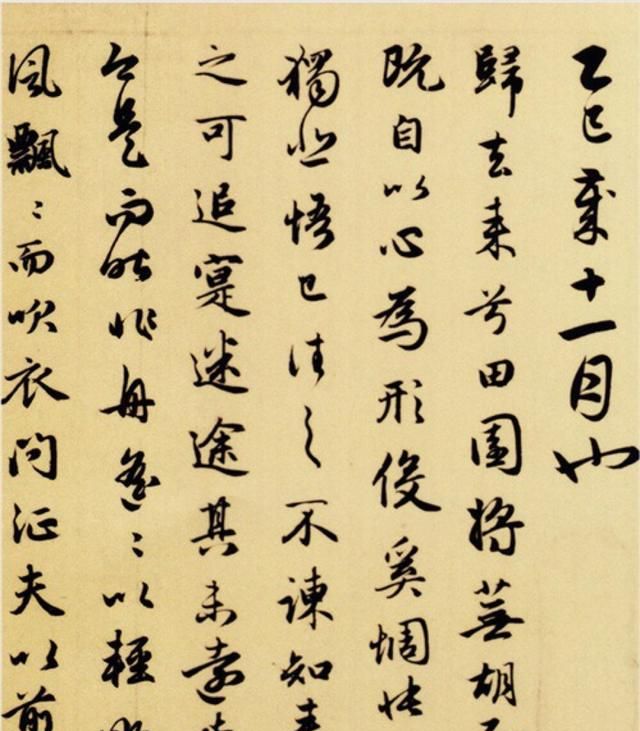 乙巳歲十一月也
歸去来兮田園將蕪胡
既自以心為形役奚惆悵
獨悲悟已往之不諫知
之可追寔迷途其未遠
今是而昨非舟遥〻以輕
風飄〻而吹衣問征夫以前